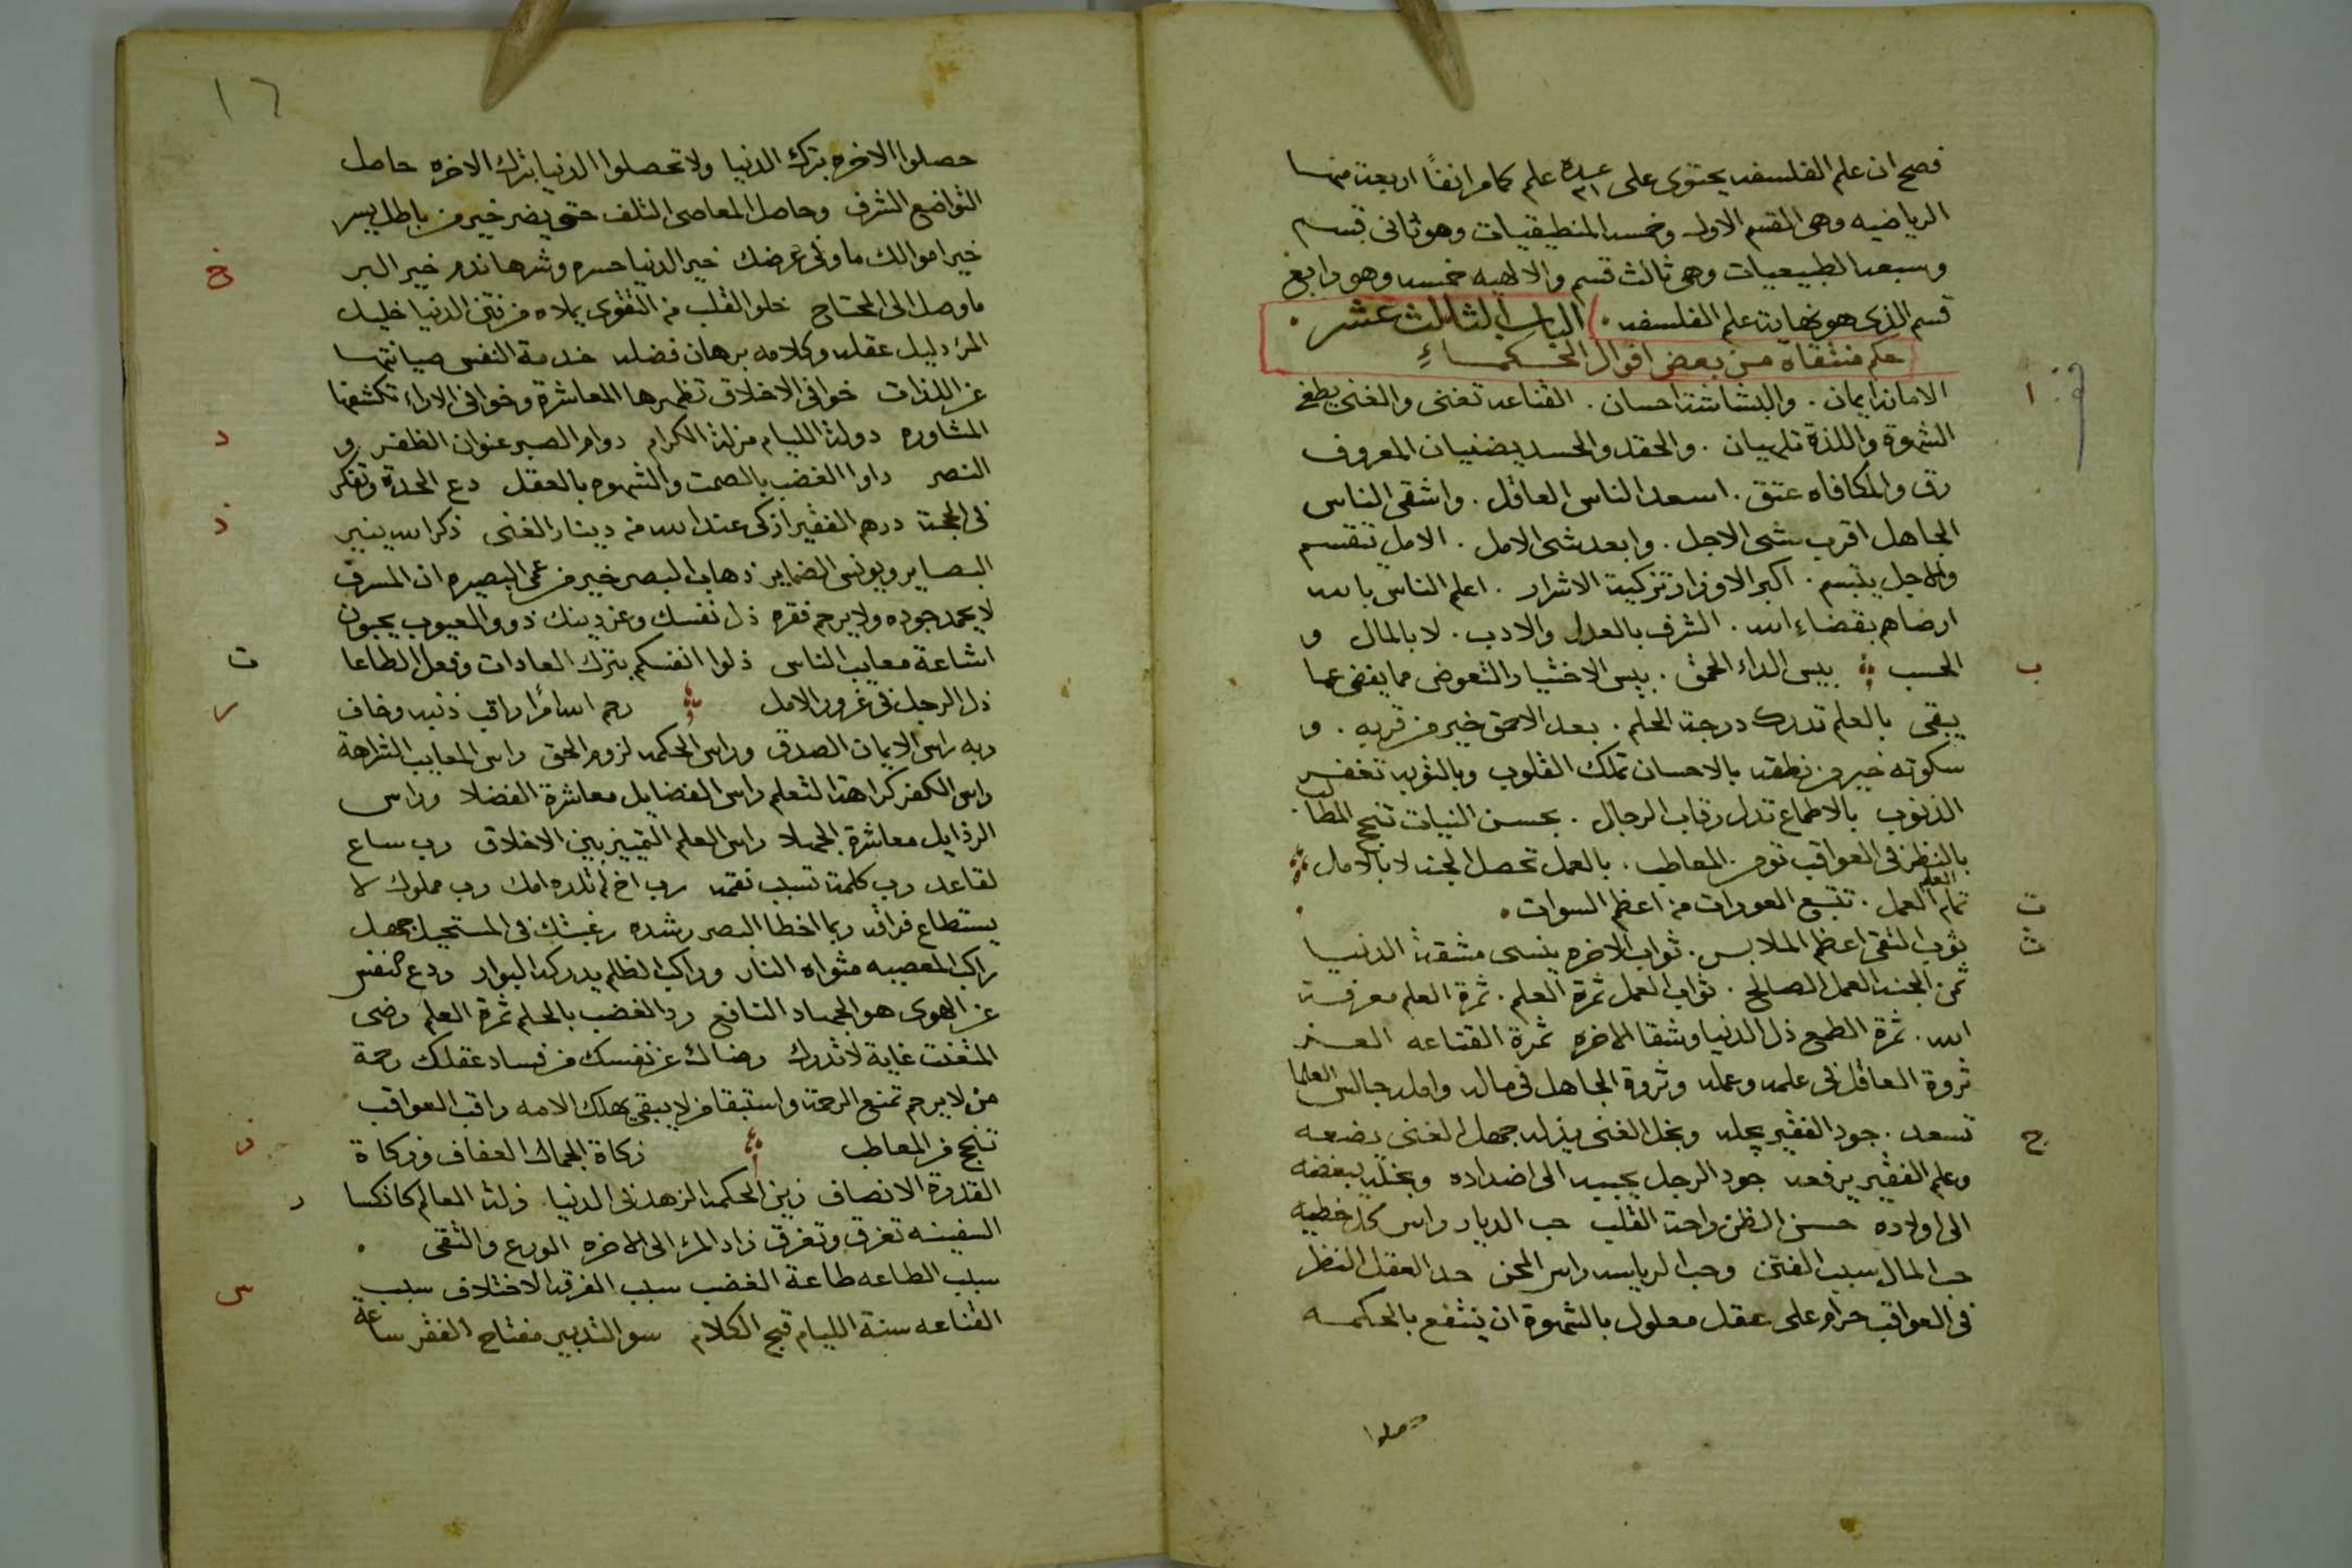 فصح ان علم الفلسفه يحتوى على عدة ٢١ علم كما مر انفًا اربعة منها
الرياضيه وهى القسم الاول وخمسه المنطيقيات وهو ثانى قسم
وسبعه الطبيعيات وهى ثالث قسم والالهيه خمسه وهو رابع
قسم الذى هو نهاية علم الفلسفه . الباب الثالث عشر .
حكم منتقاة من بعض اقوال الحكماءِ
ا
الامانه ايمان . والبشاشة احسان . القناعه تغنى والغنى يطغى
الشهوة واللذة تلهيان . والحقد والحسد يضنيان المعروف
رق والمكافاه عتق . اسعد الناس العاقل . واشقى الناس
الجاهل اقرب شى الاجل . وابعد شى الامل . الامل تنقسم
والاجل يبتسم . اكبر الاوزار تزكية الاشرار . اعلم الناس بالله
ارضاهم بقضاءِ الله . الشرف بالعدل والادب . لا بالمال و
ب
الحسب بيس الداء الحمق . بيس الاختيار التعوض مما يفنى عما
يبقى بالعلم تدرك درجة الحلم . بعد الاحمق خير من قربه . و
سكوته خير من نطقه بالاحسان تملك القلوب وبالتوبه تغفر
الذنوب بالاطماع تذل رقاب الرجال . بحسن النيات تنجح المطالب .
بالنظر فى العواقب تومن المعاطب . بالعمل تحصل الجنه لا بالامال
ت
تمام العلم العمل . تتبع العورات من اعظم السوات .
ث
ثوب التقى اعظم الملابس . ثواب الاخره ينسى مشقة الدنيا
ثمن الجنه العمل الصالح . ثواب العمل ثمرة العلم . ثمرة العلم معرفة
الله . ثمرة الطمع ذل الدنيا وشقا الاخره ثمرة القناعه العز
ثروة العاقل فى علمه وعمله وثروة الجاهل فى ماله وامله جالس العلما
ج
تسعد . جود الفقير يجله وبخل الغنى يذله جهل الغنى يضعه
وعلم الفقير يرفعه جود الرجل يحببه الى اضداده وبخله يبغضه
الى اولاده حسن الظن راحة القلب حب الديار راس كل خطيه
حب المال سبب الفتن وحب الرياسه راس المحن حد العقل النظر
فى العواقب حرام على عقل معلول بالشهوة ان ينتفع بالحكمه
حصلوا
١٦
حصلوا الاخره بترك الدنيا ولا تحصلوا الدنيا بترك الاخره حاصل
التواضع الشرف وحاصل المعاصى التلف حق يضر خير من باطل يسر
خ
خير اموالك ما وقى عرضك خير الدنيا حسره وشرها ندم خير البر
ما وصل الى المحتاج خلو القلب من التقوى يملاه من فتن الدنيا خليل
المرٔ دليل عقله وكلامه برهان فضله خدمة النفس صيانتها
عن اللذات خوافى الاخلاق تظهرها المعاشرة وخوافى الاراء تكشفها
د
المشاوره دولة الليام مزلة الكرام دوام الصبر عنوان الظفر و
النصر داوا الغضب بالصمت والشهوه بالعقل دع الحدة وتفكر
ذ
فى الحجة درهم الفقير ازكى عند الله من دينار الغنى ذكر الله ينير
البصاير ويونس الضماير ذهاب البصر خير من عمى البصيره ان المسرف
لا يحمد جوده ولا يرحم فقره ذل نفسك وعز دينك ذوو العيوب يحبون
ت
اشاعة معايب الناس ذلوا انفسكم بترك العادات وفعل الطاعا
ر
ذل الرجل فى غرور الامل رحم الله امرًا راقب ذنبه وخاف
ربه راس الايمان الصدق وراس الحكمه لزوم الحق راس المعايب الشراهة
راس الكفر كراهة التعلم راس الفضايل معاشرة الفضلا وراس
الرذايل معاشرة الجهلا راس العلم التمييز بين الاخلاق رب ساع
لقاعد رب كلمة تسبب نقمه رب اخ لم تلده امك رب مملوك لا
يستطاع فراقه ربما اخطا البصر رشده رغبتك فى المستحيل جهل
راكب المعصيه مثواه النار وراكب الظلم يدركه البوار ردع النفس
عن الهوى هو الجهاد النافع رد الغضب بالحلم ثمرة العلم رضى
المتعنت غاية لا تدرك رضاك عن نفسك من فساد عقلك رحمة
من لا يرحم تمنع الرحمة واستبقا من لا يبقى يهلك الامه راقب العواقب
ز
تنجح من المعاطب زكاة الجمال العفاف وزكاة
القدرة الانصاف زين الحكمه الزهد فى الدنيا زلة العالم كانكسا ر
السفينه تغرق وتغرق زاد المرٔ الى الاخره الورع والتقى .
س
سبب الطاعه طاعة الغضب سبب الفرقه الاختلاف سبب
القناعه سنة الليام قبح الكلام سو التدبير مفتاح الفقر ساعة